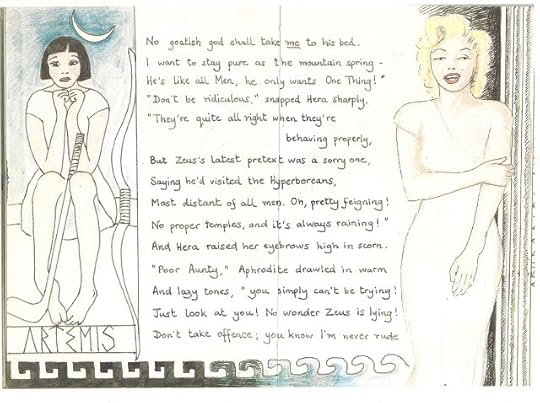 No goatish god shall take me to his bed.
I want to stay pure as the mountain spring -
He's like all Men, he only wants One Thing!"
"Don't be ridiculous," snapped Hera sharply.
"They're quite all right when they're
behaving properly,
But Zeus's latest pretext was a sorry one,
Saying he'd visited the Hyperboreans,
Most distant of all men. Oh, pretty feigning!
No proper temples, and it's always raining!"
And Hera raised her eyebrows high in scorn.
"Poor Aunty," Aphrodite drawled in warm
And lazy tones, "you simply can't be trying!
Just look at you! No wonder Zeus is lying!
Don't take offence; you know I'm never rude
ARTEMIS